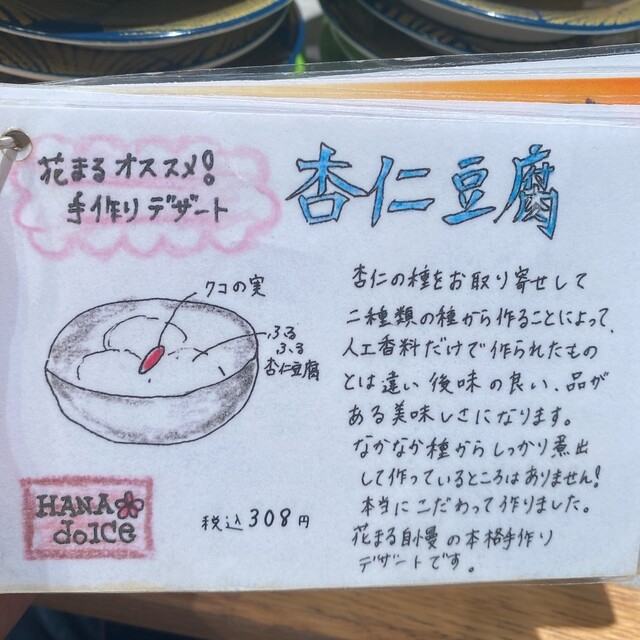 花まるオススメ!
手作りデザート
杏仁豆腐
クコの実
ふる
ふる
杏仁豆腐
杏仁の種をお取り寄せして
二種類の種から作ることによって、
人工香料だけで作られたもの
とは違い後味の良い、品が
ある美味しさになります。
なかなか種からしっかり煮出
して作っているところはありません!
本当にこだわって作りました。
花まる自慢の本格手作り
デザートです。
HANA
dolce
税込308円